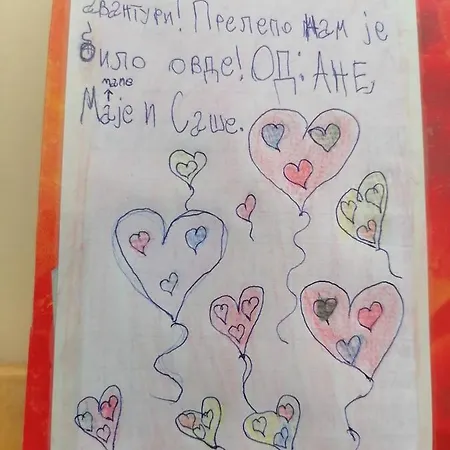 авантури! Прелепо нам је
било овде! ОД: АНЕ,
мале
Маје и Саше.